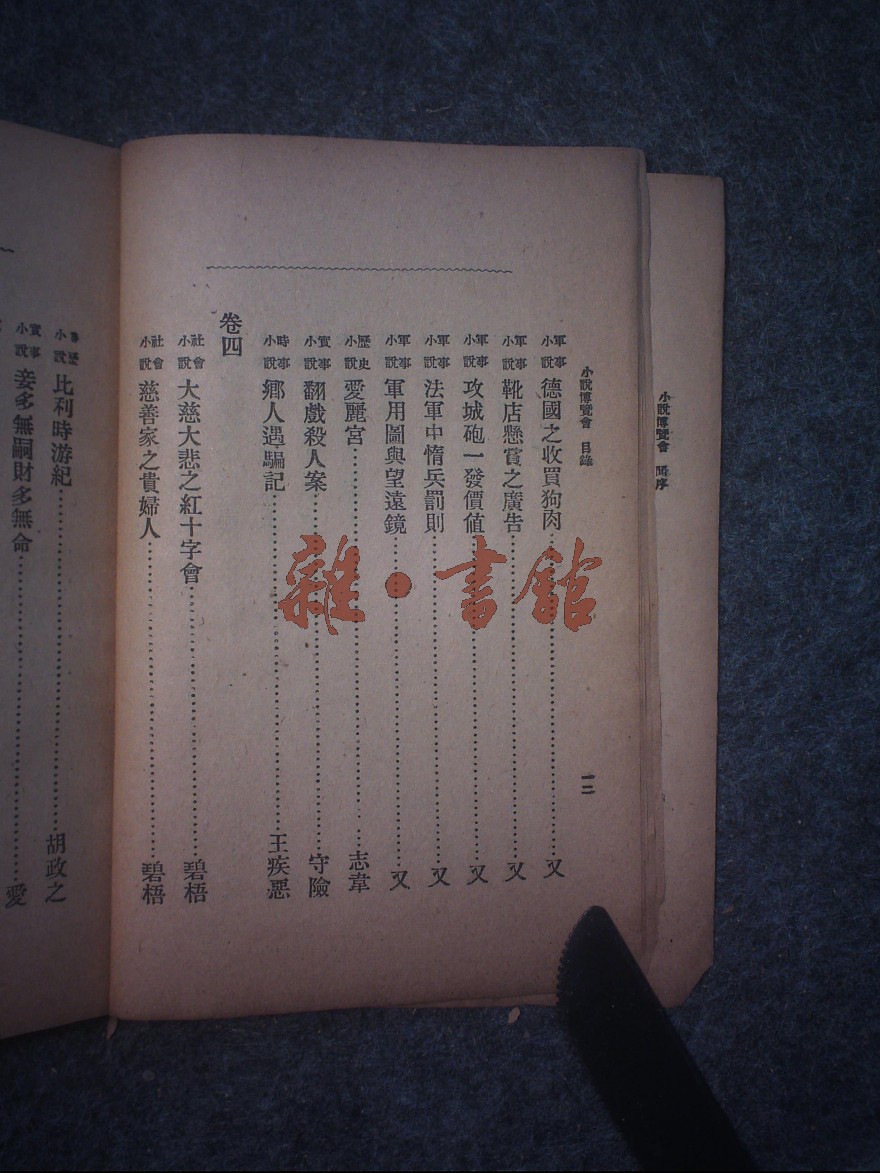 小說博覽會 閱序
小說博覽會 目錄 一二
軍事小說 德國之收買狗肉 又
軍事小說 靴店懸賞之廣告 又
軍事小說 攻城砲一發價値 又
軍事小說 法軍中惰兵罰則 又
軍事小說 軍用圖與望遠鏡 又
歷史小說 愛麗宮 志韋
實事小說 翻戲殺人案 守險
時事小說 鄉人遇騙記 王疾惡
卷四
社會小說 大慈大悲之紅十字會 碧梧
社會小說 慈善家之貴婦人 碧梧
小說 比利時游紀 胡政之
實事小說 妾多無嗣財多無命 愛
雜·書館